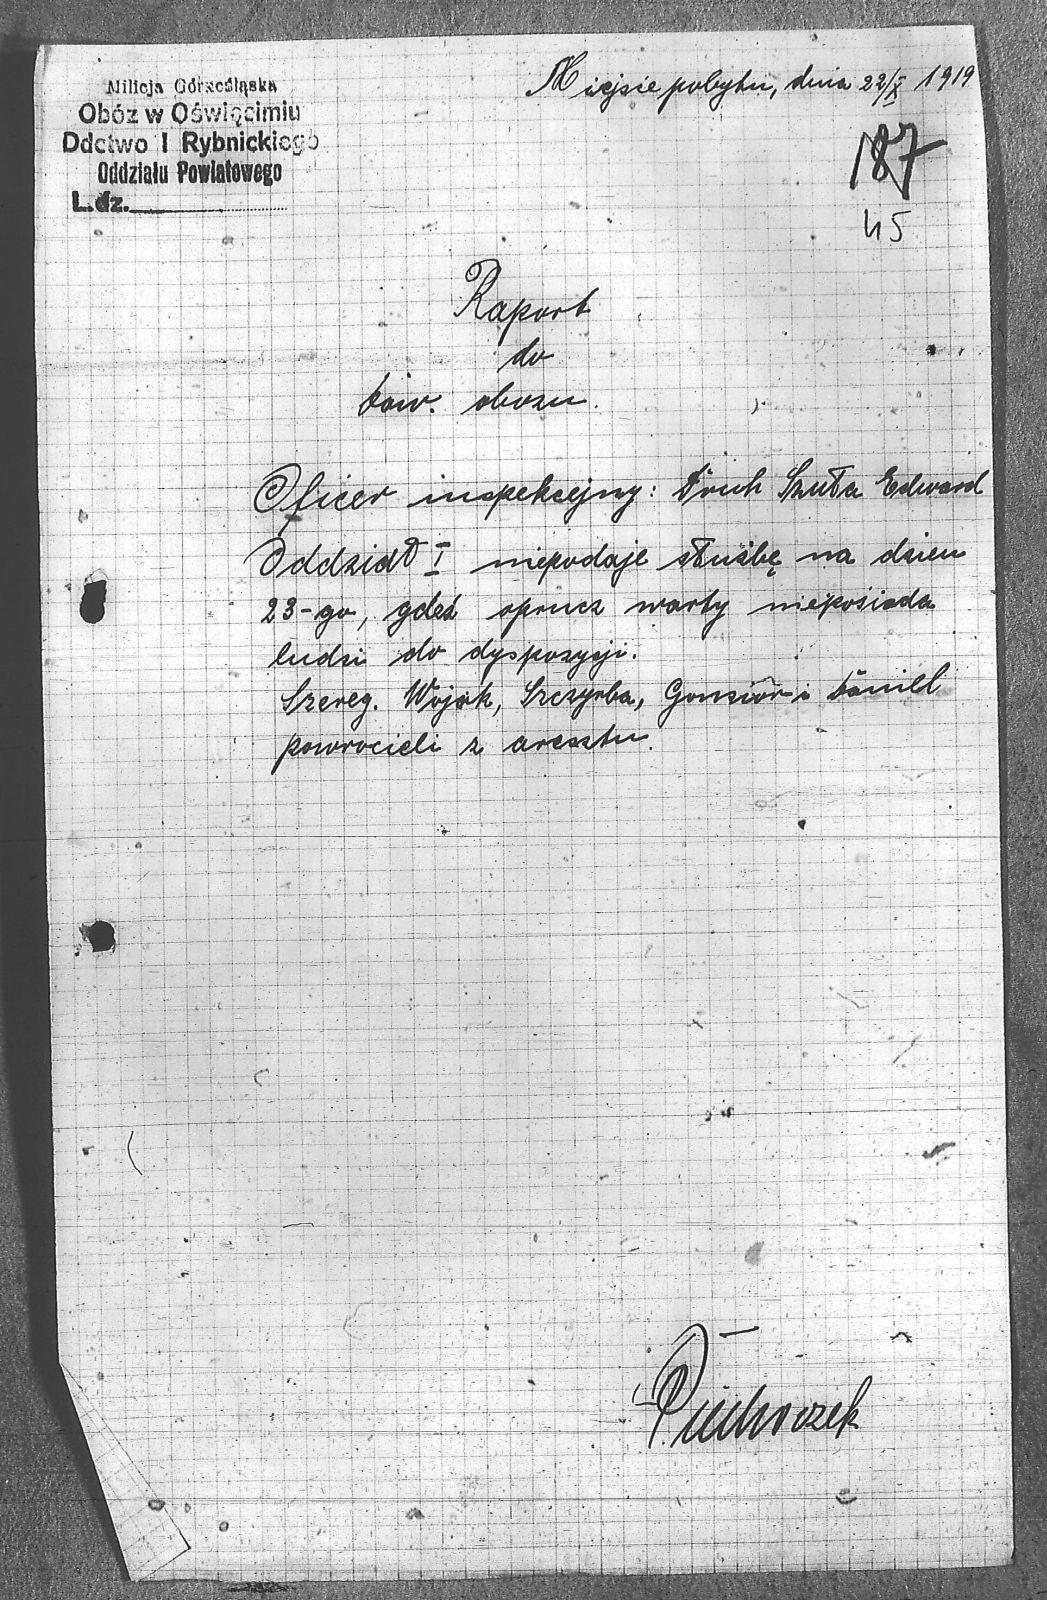 Milicja Górnośląska
Obóz w Oświęcimiu
Ddctwo I Rybnickiego
Oddziału Powiatowego
L.dz.
Miejsce pobytu, dnia 22/X 1919
187
45
Raport
do
dow. obozu.
Oficer inspekcejny: Druh Szuła Edward
Oddział I niepodaje służbę na dzien
23-go, gdež oprucz warty nieposiada
ludzi do dyspozycji.
Szereg. Wojak, Szczyrba, Gonsior i
powrocieli z aresztu.
Piechoczek